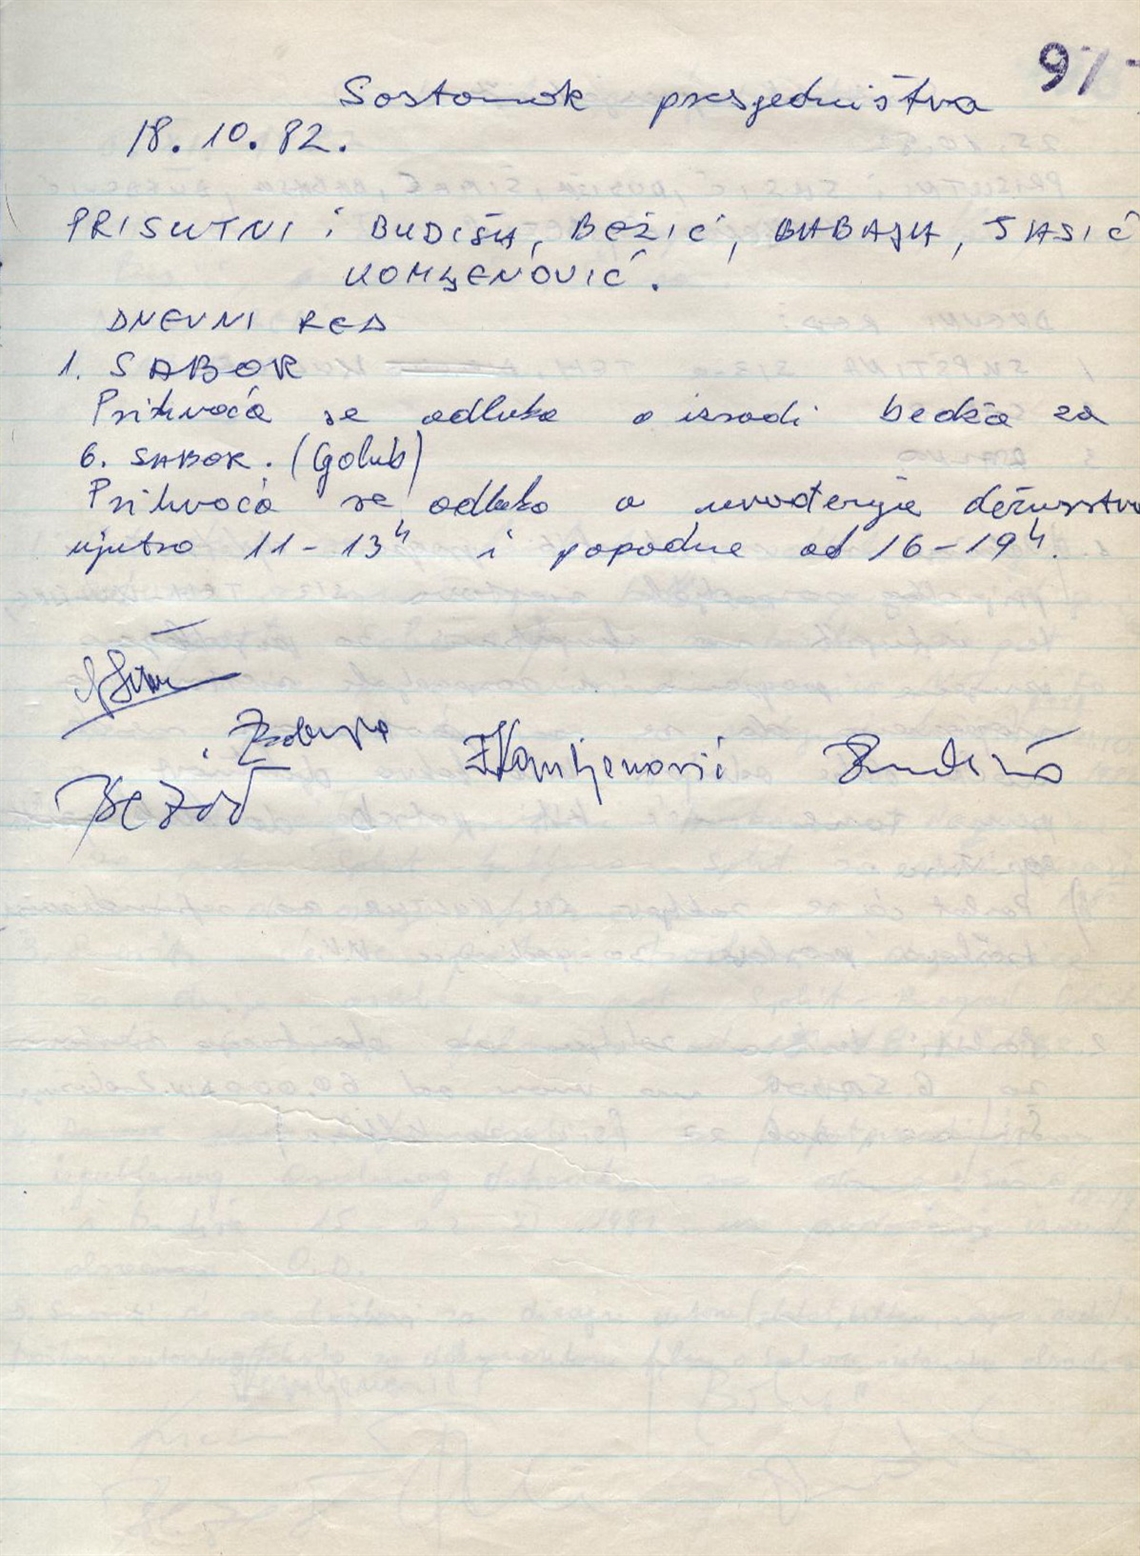 97
Sastanak presjedništva
18.10.82.
PRISUTNI: BUDIŠA, BEŽIĆ, BABAJA, SASIĆ
KOMLJENOVIĆ.
DNEVNI RED
1. SABOR
Prihvaća se odluka o izradi bedža za
6. SABOR. (Golub)
Prihvaća se odluka o uvođenju dežurstva
ujutro 11-13h i popodne od 16-19h.
Babaja
Bežić
Komljenović
Budiša